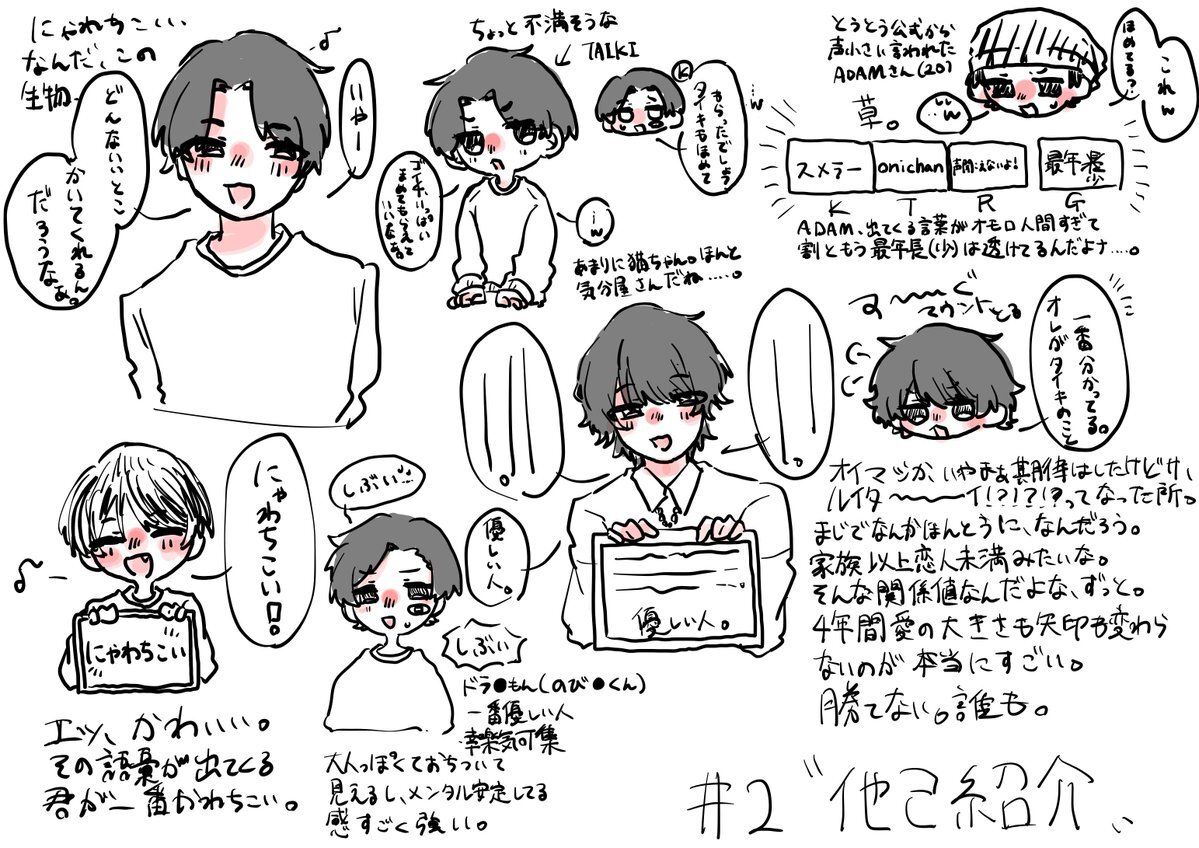 にゃれちこい、
なんだ、この
生物、
どんないいとこ
かいてくれるん
だろうなぁ。
いやー
ちょっと不満そうな
TAIKI
ゴイチ、いっぱい
ほめてもらえて
いいなぁ。
K
もらったでしょう
タイキもほめて
…w
;w
あまりに猫ちゃん。ほんと
気分屋さんだね……。
とうとう公式から
声小さい言われた
ADAMさん(20)
これw
ほめてる?
草。
スメラー
onichan
声聞こえないよ!
最年長
少
K T R G
ADAM、出てくる言葉がオモロ人間すぎて
割ともう最年長(少)は透けてるんだよナ…。
す〜〜〜ぐ
マウントとる
一番分かってる。
オレがタイキのこと
オイマツか、いやまぁ期待はしたけどけ、
ルイタ〜〜〜イ!?!?!?ってなった所。
まじでなんかほんとうに、なんだろう。
家族以上恋人未満みたいな。
そんな関係値なんだよな、ずっと。
4年間愛の大きさも矢印も変わら
ないのが本当にすごい。
勝てない。誰も。
にゃわちこい!。
にゃわちこい
エッ、かわいい。
その語彙が出てくる
君が一番かわちこい。
しぶい!!
優しい人。
しぶい
ドラ●もん(のび●くん)
一番優しい人
大人っぽくておちついて
見えるし、メンタル安定してる
感すごく強い。
優しい人。
#2 〝他己紹介〟